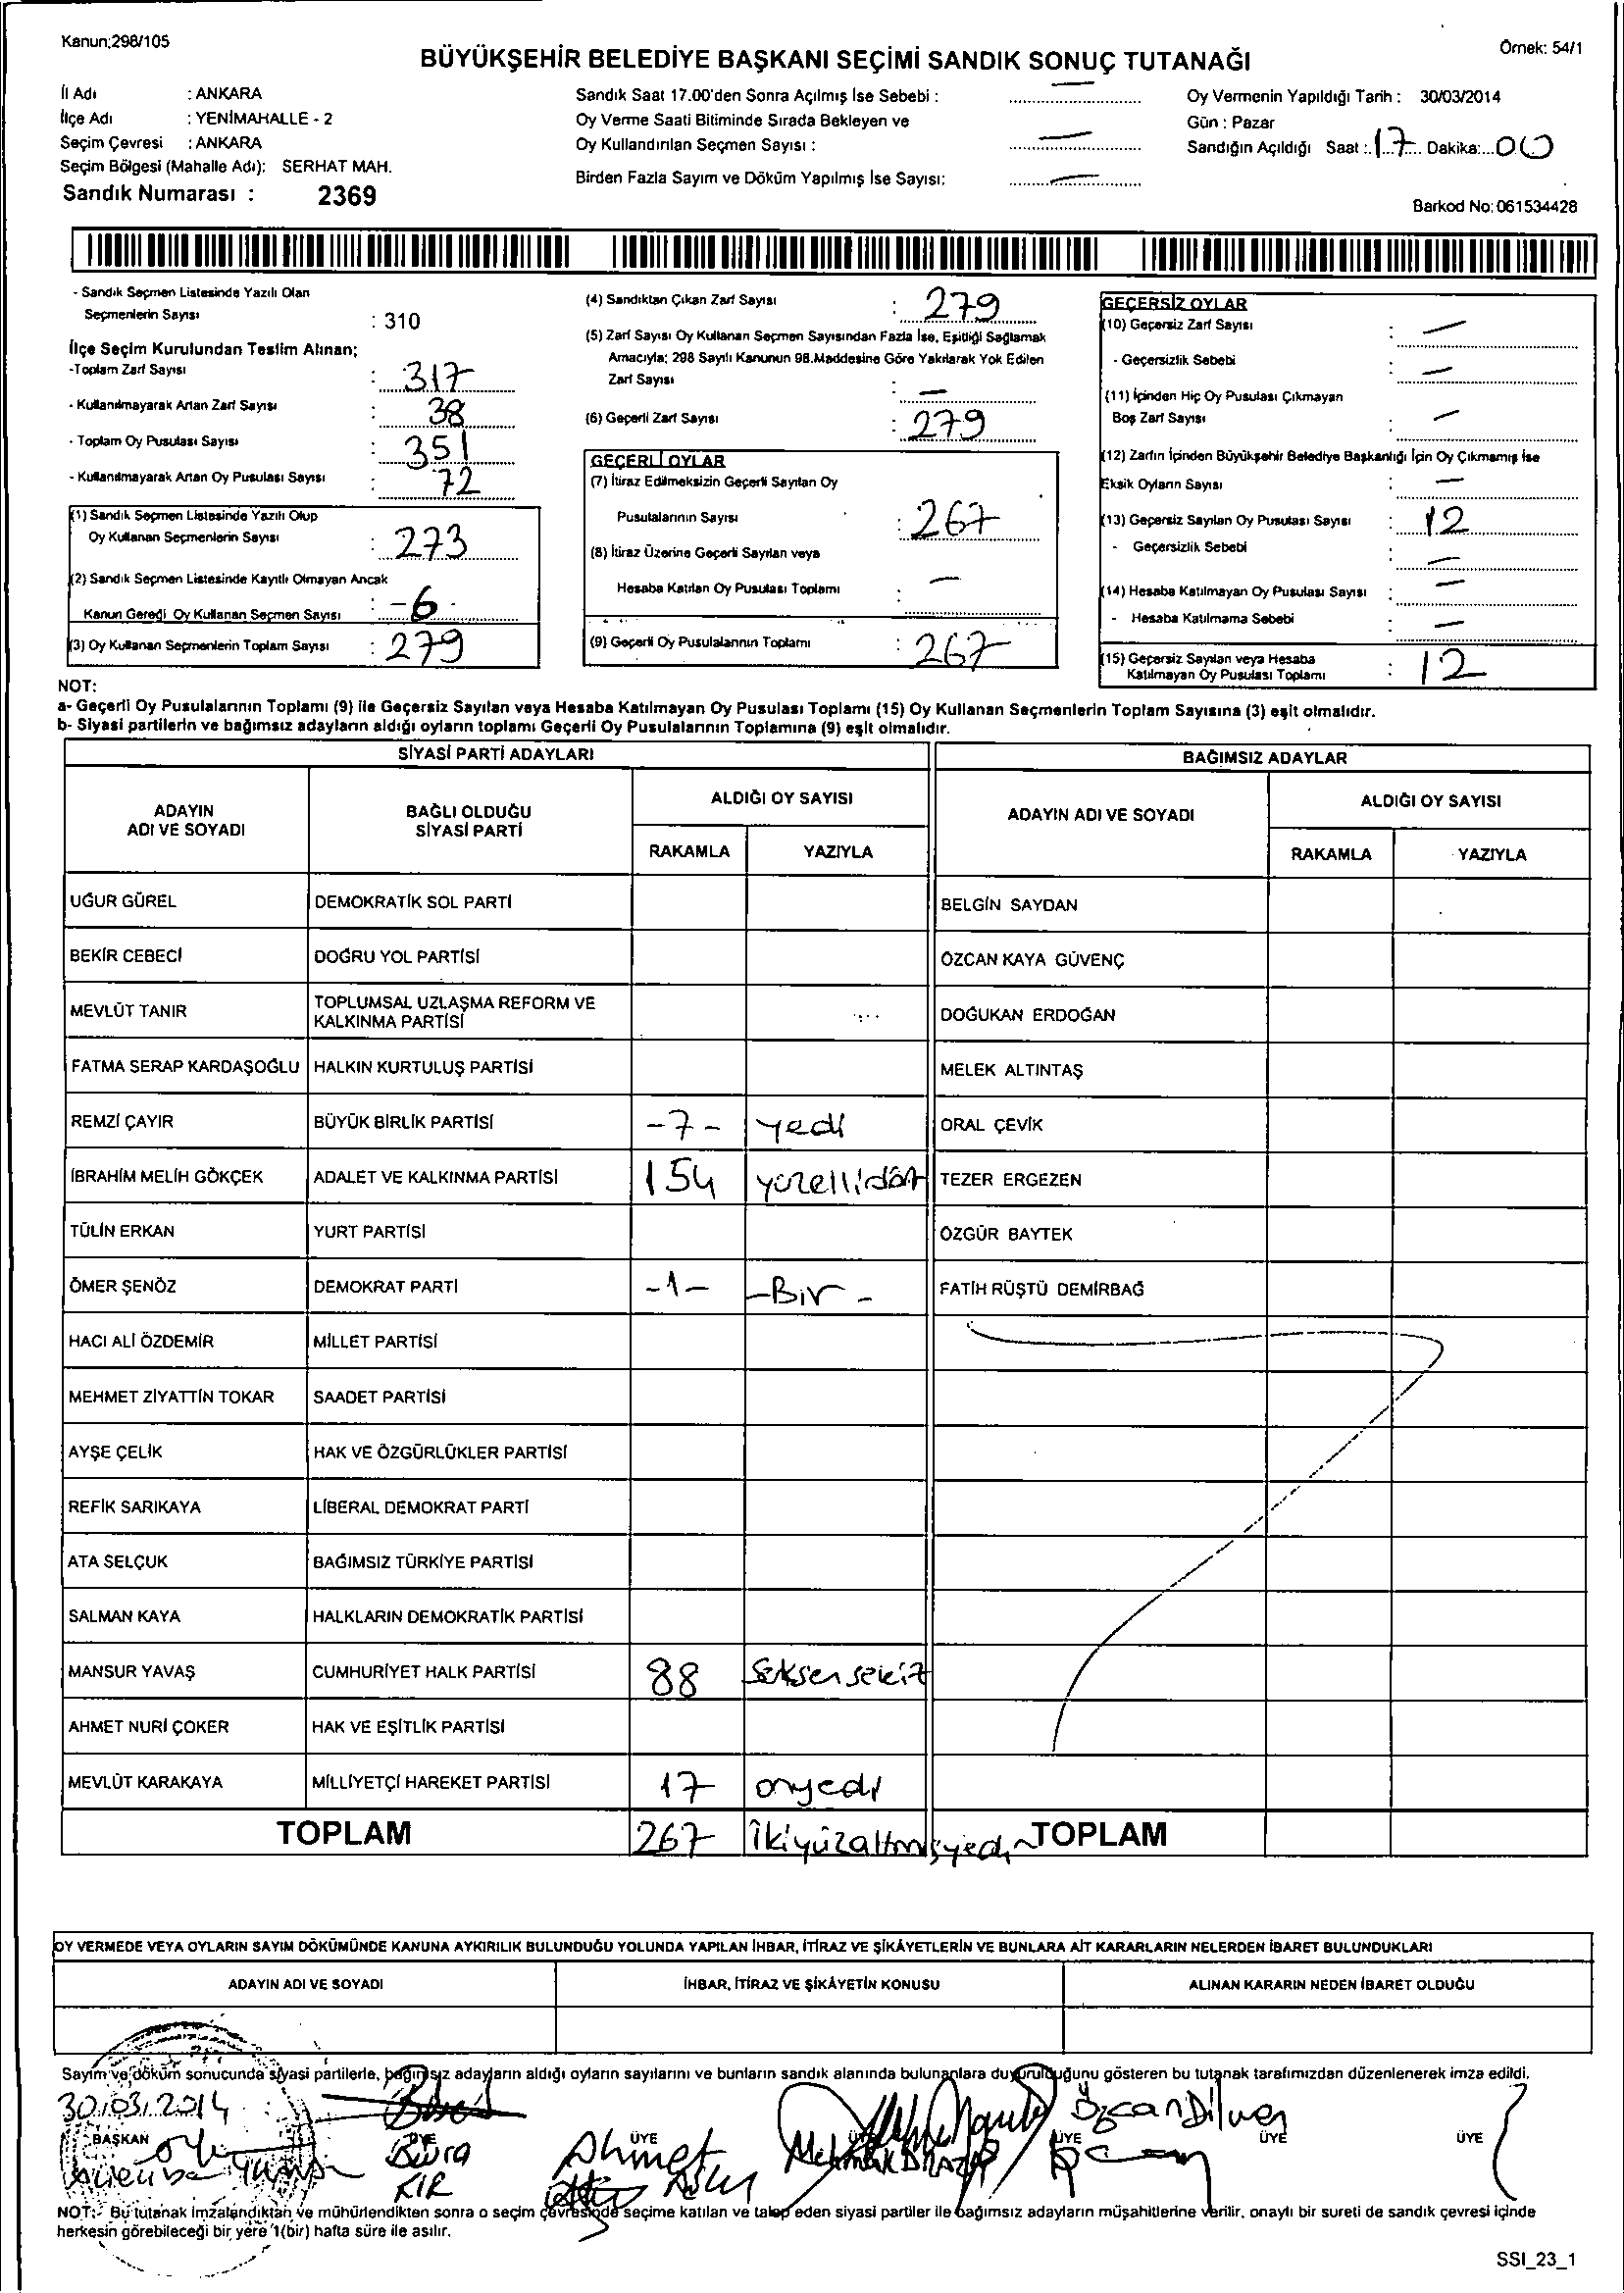 Kanun;298/105
Örnek: 54/1
BÜYÜKŞEHİR BELEDİYE BAŞKANI SEÇİMİ SANDIK SONUÇ TUTANAĞI
İl Adı : ANKARA
İlçe Adı : YENİMAHALLE - 2
Seçim Çevresi : ANKARA
Seçim Bölgesi (Mahalle Adı): SERHAT MAH.
Sandık Numarası : 2369
Sandık Saat 17.00'den Sonra Açılmış İse Sebebi : —
Oy Verme Saati Bitiminde Sırada Bekleyen ve
Oy Kullandırılan Seçmen Sayısı : —
Birden Fazla Sayım ve Döküm Yapılmış İse Sayısı: —
Oy Vermenin Yapıldığı Tarih : 30/03/2014
Gün : Pazar
Sandığın Açıldığı Saat : 17 Dakika: 00
Barkod No: 061534428
- Sandık Seçmen Listesinde Yazılı Olan
Seçmenlerin Sayısı : 310
İlçe Seçim Kurulundan Teslim Alınan;
-Toplam Zarf Sayısı : 317
- Kullanılmayarak Artan Zarf Sayısı : 38
- Toplam Oy Pusulası Sayısı : 351
- Kullanılmayarak Artan Oy Pusulası Sayısı : 72
(1) Sandık Seçmen Listesinde Yazılı Olup
Oy Kullanan Seçmenlerin Sayısı : 273
(2) Sandık Seçmen Listesinde Kayıtlı Olmayan Ancak
Kanun Gereği Oy Kullanan Seçmen Sayısı : -6-
(3) Oy Kullanan Seçmenlerin Toplam Sayısı : 279
(4) Sandıktan Çıkan Zarf Sayısı : 279
(5) Zarf Sayısı Oy Kullanan Seçmen Sayısından Fazla İse, Eşitliği Sağlamak
Amacıyla; 298 Sayılı Kanunun 98.Maddesine Göre Yakılarak Yok Edilen
Zarf Sayısı : —
(6) Geçerli Zarf Sayısı : 279
GEÇERLİ OYLAR
(7) İtiraz Edilmeksizin Geçerli Sayılan Oy
Pusulalarının Sayısı : 267
(8) İtiraz Üzerine Geçerli Sayılan veya
Hesaba Katılan Oy Pusulası Toplamı : —
(9) Geçerli Oy Pusulalarının Toplamı : 267
GEÇERSİZ OYLAR
(10) Geçersiz Zarf Sayısı : —
- Geçersizlik Sebebi : —
(11) İçinden Hiç Oy Pusulası Çıkmayan
Boş Zarf Sayısı : —
(12) Zarfın İçinden Büyükşehir Belediye Başkanlığı İçin Oy Çıkmamış İse
Eksik Oyların Sayısı : —
(13) Geçersiz Sayılan Oy Pusulası Sayısı : 12
- Geçersizlik Sebebi : —
(14) Hesaba Katılmayan Oy Pusulası Sayısı : —
- Hesaba Katılmama Sebebi : —
(15) Geçersiz Sayılan veya Hesaba
Katılmayan Oy Pusulası Toplamı : 12
NOT:
a- Geçerli Oy Pusulalarının Toplamı (9) ile Geçersiz Sayılan veya Hesaba Katılmayan Oy Pusulası Toplamı (15) Oy Kullanan Seçmenlerin Toplam Sayısına (3) eşit olmalıdır.
b- Siyasi partilerin ve bağımsız adayların aldığı oyların toplamı Geçerli Oy Pusulalarının Toplamına (9) eşit olmalıdır.
SİYASİ PARTİ ADAYLARI BAĞIMSIZ ADAYLAR
ADAYIN ADI VE SOYADI BAĞLI OLDUĞU SİYASİ PARTİ ALDIĞI OY SAYISI ADAYIN ADI VE SOYADI ALDIĞI OY SAYISI
RAKAMLA YAZIYLA RAKAMLA YAZIYLA
UĞUR GÜREL DEMOKRATİK SOL PARTİ BELGİN SAYDAN
BEKİR CEBECİ DOĞRU YOL PARTİSİ ÖZCAN KAYA GÜVENÇ
MEVLÜT TANIR TOPLUMSAL UZLAŞMA REFORM VE KALKINMA PARTİSİ DOĞUKAN ERDOĞAN
FATMA SERAP KARDAŞOĞLU HALKIN KURTULUŞ PARTİSİ MELEK ALTINTAŞ
REMZİ ÇAYIR BÜYÜK BİRLİK PARTİSİ -7- yedi ORAL ÇEVİK
İBRAHİM MELİH GÖKÇEK ADALET VE KALKINMA PARTİSİ 154 yüzellidört TEZER ERGEZEN
TÜLİN ERKAN YURT PARTİSİ ÖZGÜR BAYTEK
ÖMER ŞENÖZ DEMOKRAT PARTİ -1- -Bir- FATİH RÜŞTÜ DEMİRBAĞ
HACI ALİ ÖZDEMİR MİLLET PARTİSİ
MEHMET ZİYATTİN TOKAR SAADET PARTİSİ
AYŞE ÇELİK HAK VE ÖZGÜRLÜKLER PARTİSİ
REFİK SARIKAYA LİBERAL DEMOKRAT PARTİ
ATA SELÇUK BAĞIMSIZ TÜRKİYE PARTİSİ
SALMAN KAYA HALKLARIN DEMOKRATİK PARTİSİ
MANSUR YAVAŞ CUMHURİYET HALK PARTİSİ 88 Seksensekiz
AHMET NURİ ÇOKER HAK VE EŞİTLİK PARTİSİ
MEVLÜT KARAKAYA MİLLİYETÇİ HAREKET PARTİSİ 17 onyedi
TOPLAM 267 ikiyüzaltmışyedi TOPLAM
OY VERMEDE VEYA OYLARIN SAYIM DÖKÜMÜNDE KANUNA AYKIRILIK BULUNDUĞU YOLUNDA YAPILAN İHBAR, İTİRAZ VE ŞİKÂYETLERİN VE BUNLARA AİT KARARLARIN NELERDEN İBARET BULUNDUKLARI
ADAYIN ADI VE SOYADI İHBAR, İTİRAZ VE ŞİKÂYETİN KONUSU ALINAN KARARIN NEDEN İBARET OLDUĞU
Sayım ve döküm sonucunda siyasi partilerle, bağımsız adayların aldığı oyların sayılarını ve bunların sandık alanında bulunanlara duyurulduğunu gösteren bu tutanak tarafımızdan düzenlenerek imza edildi.
30.03.2014
BAŞKAN ÜYE ÜYE ÜYE ÜYE ÜYE ÜYE
Büşra KIR Ahmet Özcan Dilver
NOT:- Bu tutanak imzalandıktan ve mühürlendikten sonra o seçim çevresinde seçime katılan ve talep eden siyasi partiler ile bağımsız adayların müşahitlerine verilir, onaylı bir sureti de sandık çevresi içinde
herkesin görebileceği bir yere 1(bir) hafta süre ile asılır.
SSI_23_1